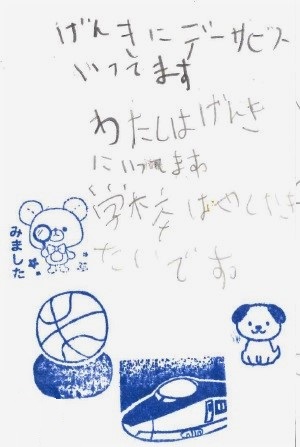 げんきにデーサビス
いってます
わたしはげんき
にいってます
学校はやくいき
たいです
みました